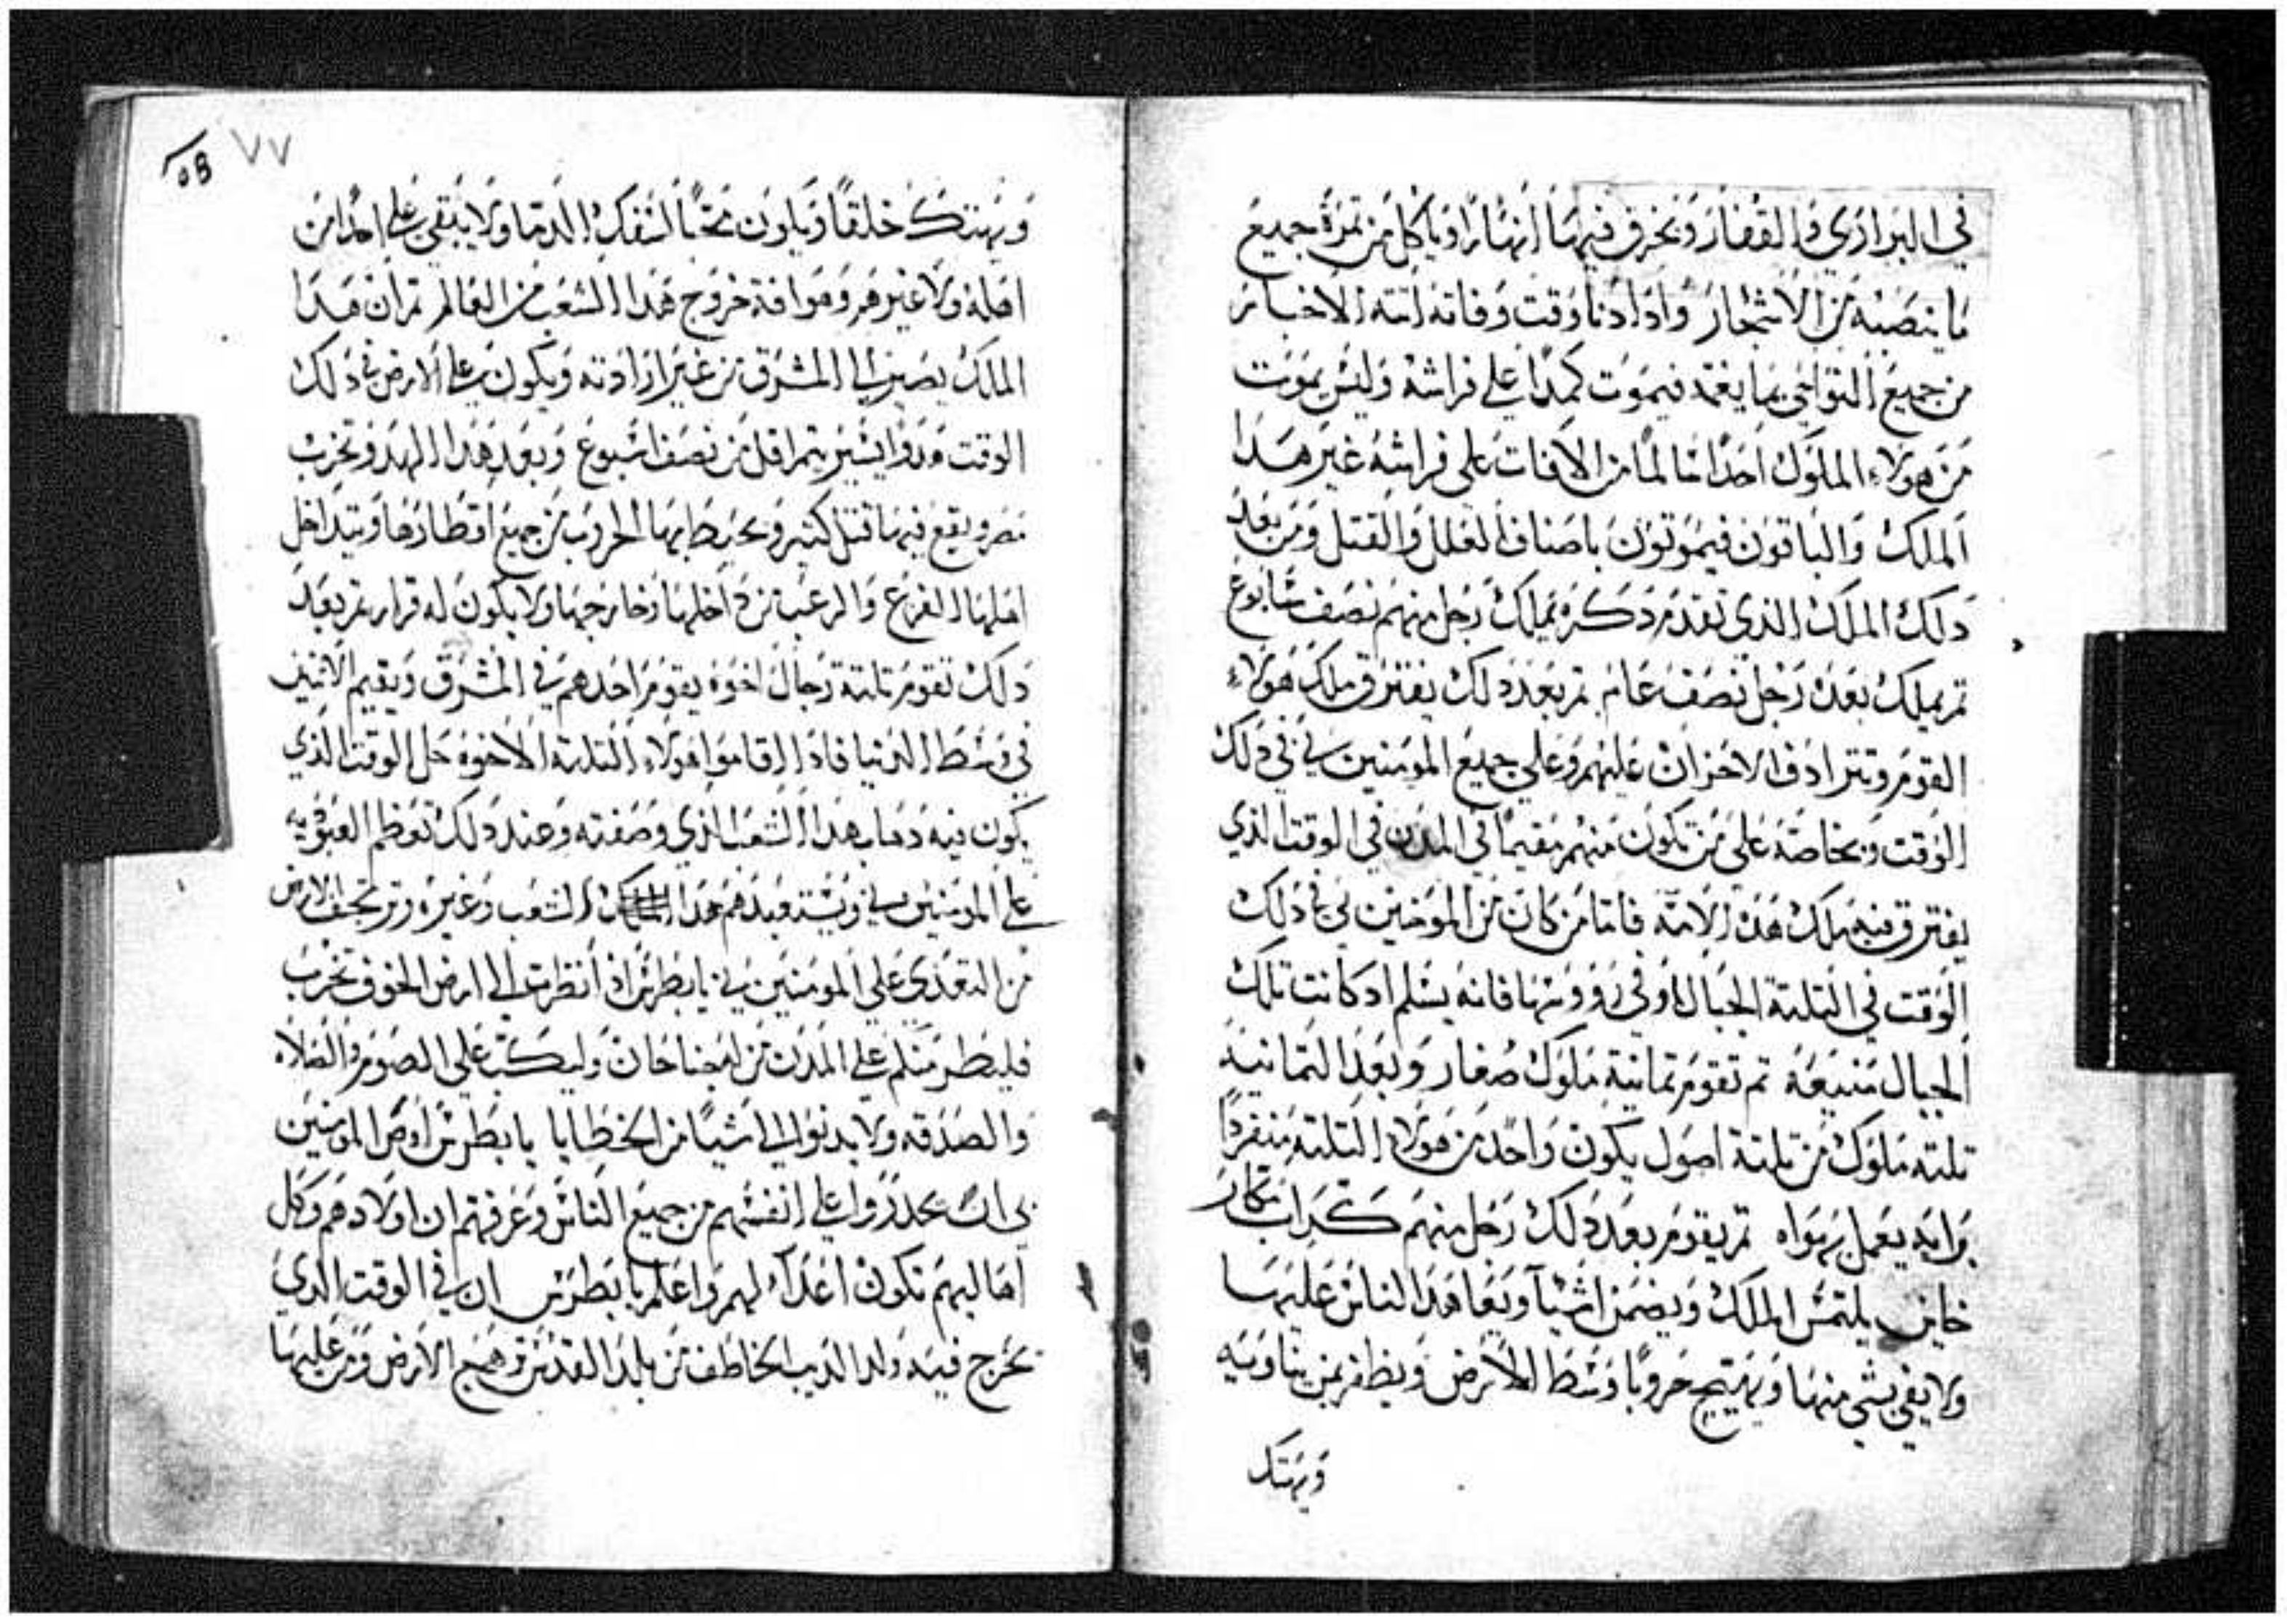 في البراري والقفار وتخرق فيها انهارا وياكل من تمرة جميع
ما ينصبه من الاشجار واذا دنا وقت وفاته اتته الاخبار
من جميع النواحي بما يغمه فيموت كمدا علي فراشه وليس يموت
من هولاء الملوك احدا سالما من الافات علي فراشه غير هدا
الملك والباقون فيموتون باصناف العلل والقتل ومن بعد
دلك الملك الدي تقدم دكره يملك رجل منهم نصف سابوع
تم يملك بعده رجل نصف عام تم بعد دلك يفترق ملك هولاء
القوم وتترادف الاحزان عليهم وعلي جميع المومنين بي في دلك
الوقت وبخاصة علي من تكون منهم مقيما في المدن في الوقت الدي
يفترق فيه ملك هده الامة فاما من كان من المومنين بي في دلك
الوقت في التلتة الجبال او في رووسها فانه يسلم اد كانت تلك
الجبال منيعة تم تقوم تمانية ملوك صغار وبعد التمانية
تلتة ملوك من تلتة اصول يكون واحد من هولاء التلتة منفردا
برايه يعمل بهواه تم يقوم بعد دلك رجل منهم كداب مكار
خاين يلتمس الملك ويضمن اشيآ ويعاهد الناس عليها
ولا يفي بشي منها ويهيج حروبا وسط الارض ويظفر بمن يناويه
ويهتك
٧٧
ويهتك خلقا ويكون محبا لسفك الدما ولا يبقي علي احدا من
اهله ولا غيرهم وهو افة خروج هدا الشعب من العالم تم ان هدا
الملك يصير الي المشرق من غير ارادته ويكون علي الارض في دلك
الوقت هدوا يسير يتم اقل من نصف اسبوع وبعد هدا الهدو تخرب
مصر ويقع فيها قتل كتير وتحيط بها الحروب من جميع اقطارها ويتداخل
اهلها الفزع والرعب من داخلها وخارجها ولا يكون له قرار تم بعد
دلك تقوم تلتة رجال اخوة يقوم احدهم في المشرق ويقيم الاتنين
في وسط الدنيا فادا اقاموا هولاء التلتة الاخوة حل الوقت الدي
يكون فيه دهاب هدا الشعب الدي وصفته وعند دلك تعظم العبودية
علي المومنين بي ويستعبدهم هدا الشعب وغيره وترتجف الارض
من التعدي علي المومنين بي يا بطرس اد انظرت الي ارض الخوف تخرب
والصدقه ولا يدنوا الي اشيا من الخطايا يا بطرس اوص المومنين
بي ان يحدروا علي انفسهم من جميع الناس وعرفهم ان اولادهم وكل
اهاليهم تكون اعداء لهم واعلم يا بطرس ان في الوقت الدي
تخرج فيه ولد الديب الخاطف من بلد القدس وجميع الارض ومن عليها